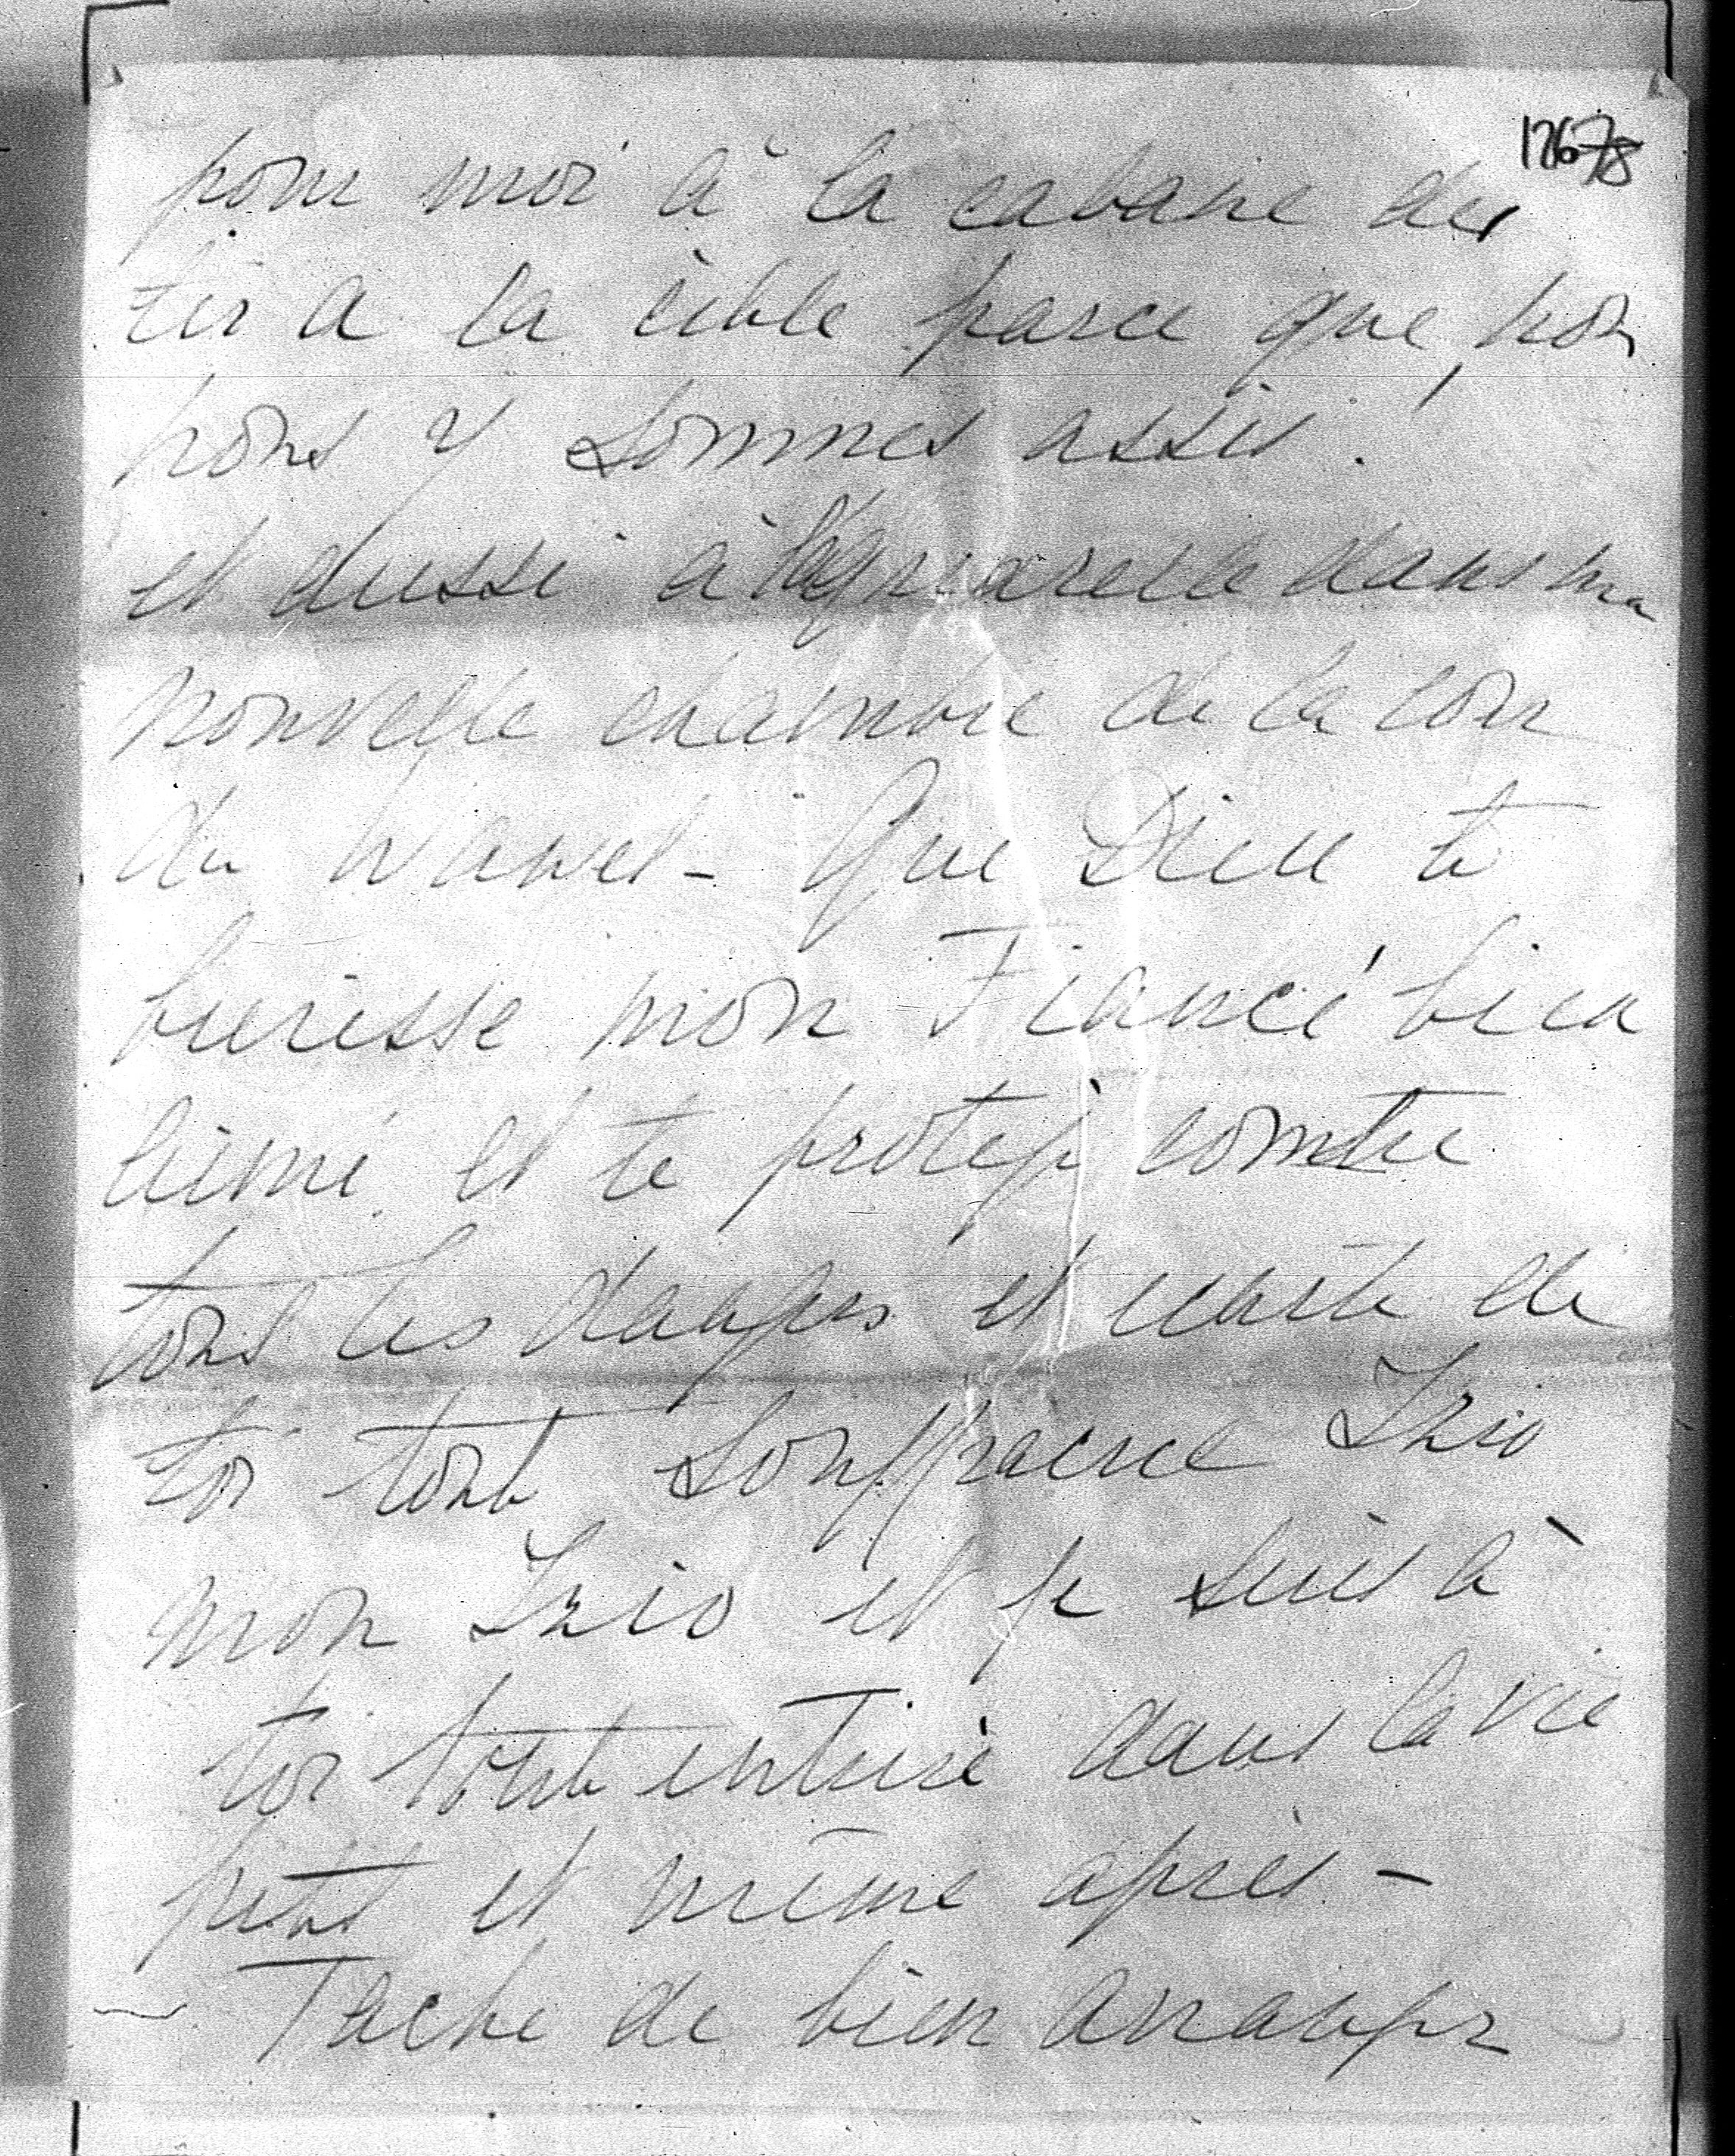 17678
pour moi à la cabane de
tir a la cible parce que
nous y sommes assis!
et aussi à l'aquarelle dans ma
nouvelle chambre de la cour
du Wawel - Que Dieu te
benisse mon Fiancé bien
aimé et te protege contre
tous les dangers et ecarte de
toi toute souffrance Izio
mon Izio et je suis à
toi toute entière dans la vie
petit et même après -
Tache de bien arranger